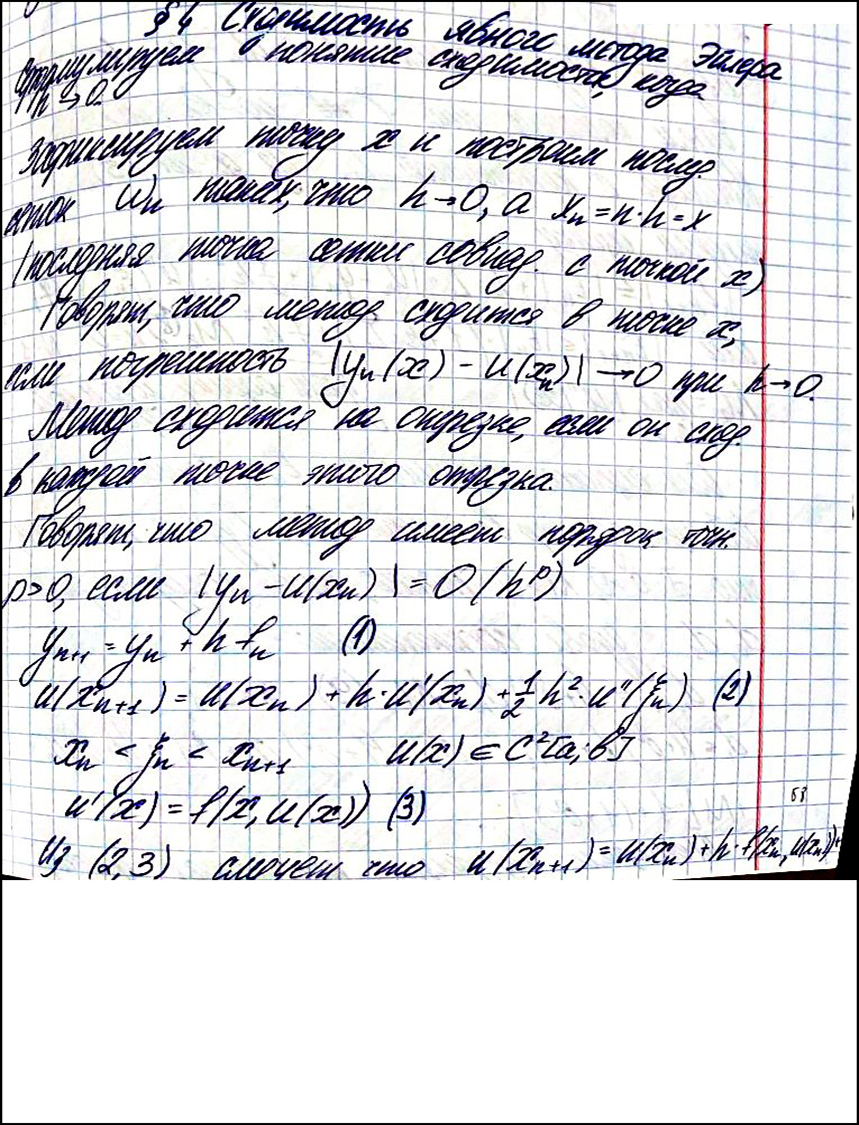 §4 Сходимость явного метода Эйлера
Сформулируем понятие сходимости, когда
h → 0.
Зафиксируем точку x и построим послед.
сеток ωn таких, что h → 0, а xn = n·h = x
(последняя точка сетки совпад. с точкой x)
Говорят, что метод сходится в точке x,
если погрешность |yn(x) - u(xn)| → 0 при h → 0.
Метод сходится на отрезке, если он сход.
в каждой точке этого отрезка.
Говорят, что метод имеет порядок точн.
p>0, если |yn - u(xn)| = O(h^p)
yn+1 = yn + h fn (1)
u(xn+1) = u(xn) + h·u'(xn) + 1/2 h²·u''(ξn) (2)
xn < ξn < xn+1 u(x) ∈ C²[a;b]
u'(x) = f(x, u(x)) (3)
58
Из (2,3) следует что u(xn+1) = u(xn) + h·f(xn, u(xn)) +